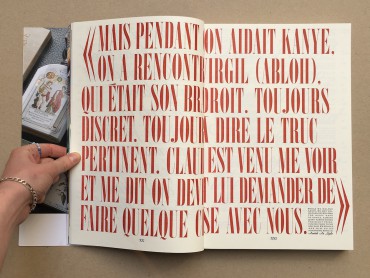 « MAIS PENDANT ON AIDAIT KANYE,
ON A RENCONTRÉ VIRGIL (ABLOH),
QUI ÉTAIT SON BR DROIT. TOUJOURS
DISCRET. TOUJOU À DIRE LE TRUC
PERTINENT. CLAU EST VENU ME VOIR
ET ME DIT ON DEV LUI DEMANDER DE
FAIRE QUELQUE OSE AVEC NOUS. »